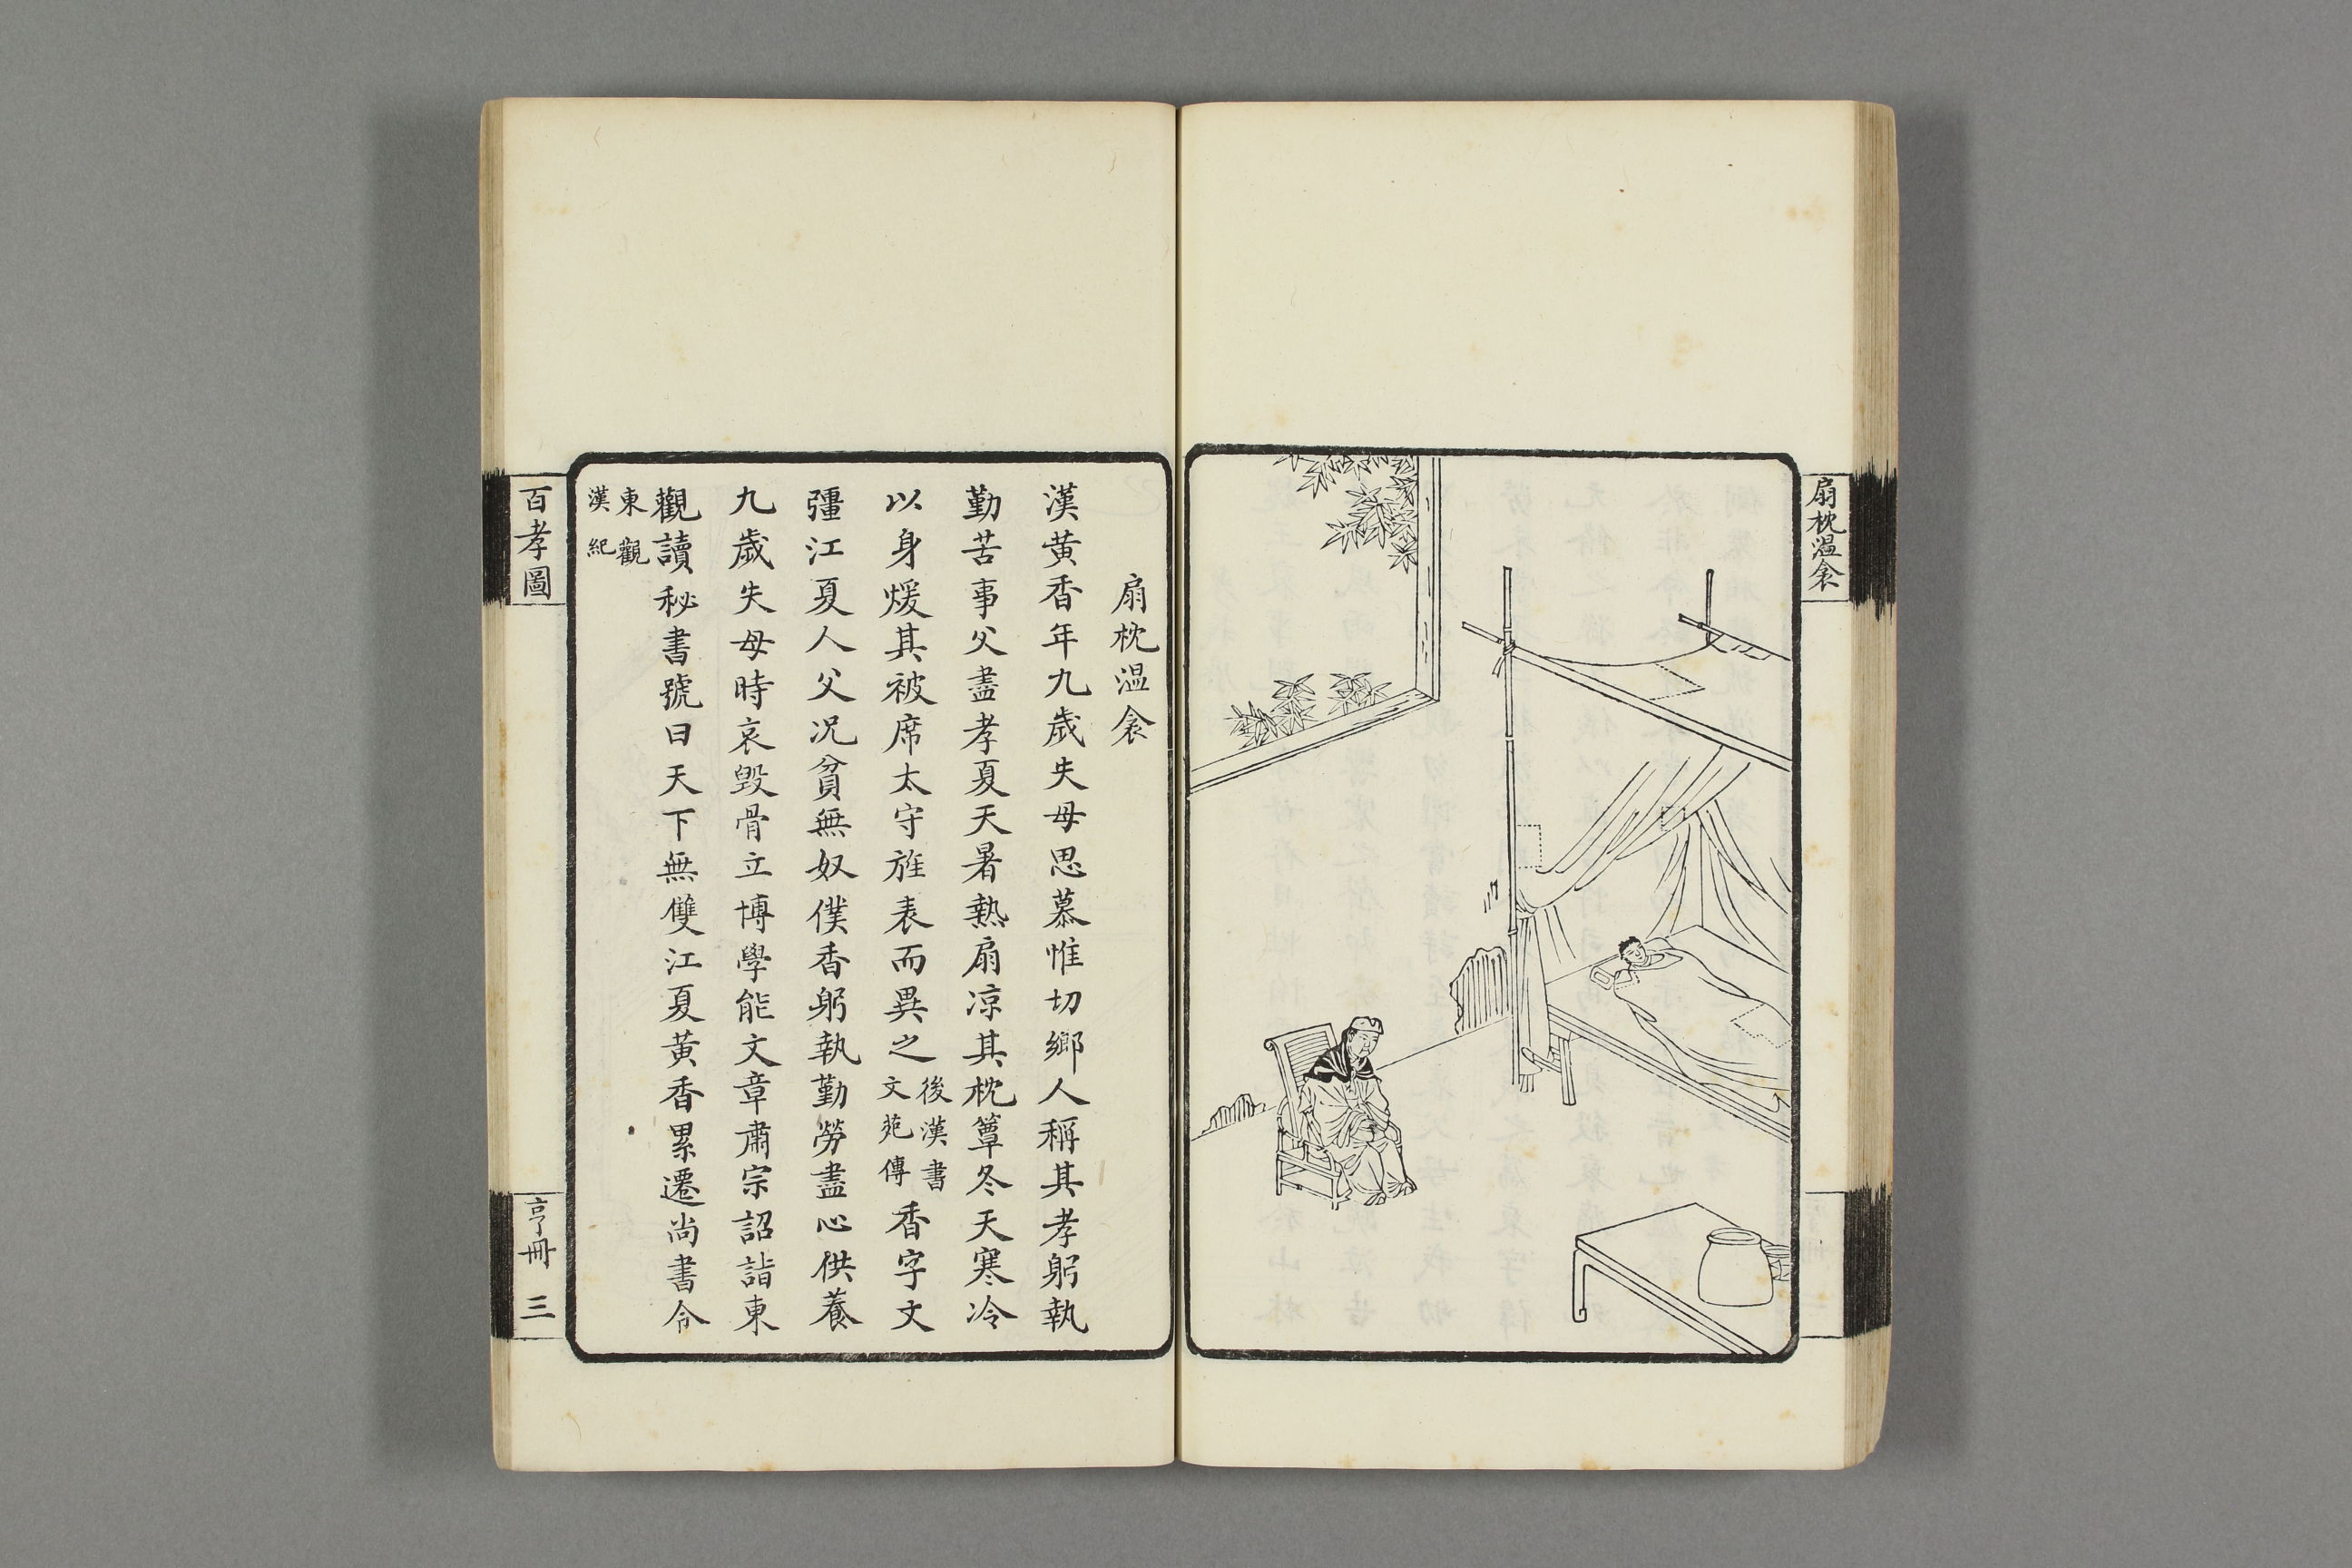 扇枕溫衾
扇枕溫衾
漢黃香年九歲失母思慕惟切鄉人稱其孝躬執
勤苦事父盡孝夏天暑熱扇凉其枕簟冬天寒冷
以身煖其被席太守旌表而異之後漢書文苑傳香字文
彊江夏人父况貧無奴僕香躬執勤勞盡心供養
九歲失母時哀毀骨立博學能文章肅宗詔詣東
觀讀秘書號曰天下無雙江夏黃香累遷尚書令
東觀
漢紀
百孝圖
亨冊 三